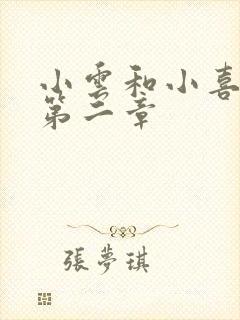 小雲和小喜
第二章
張夢琪